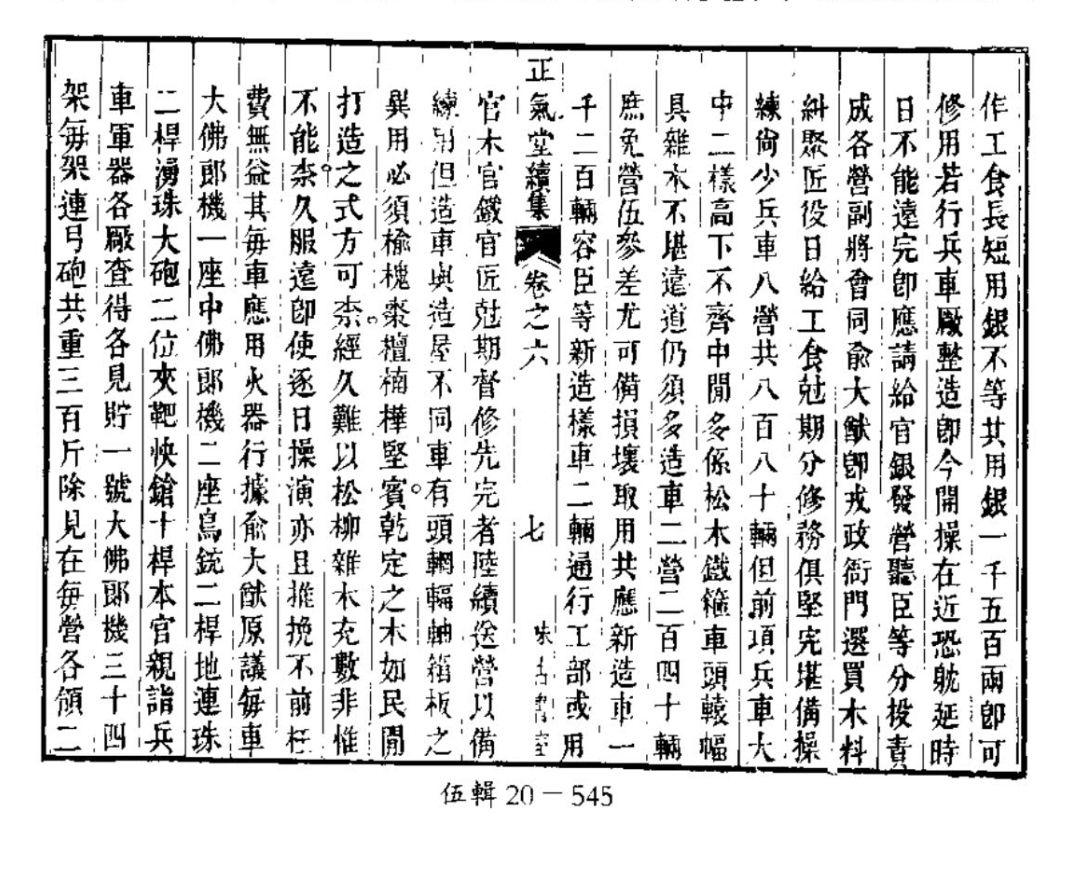 作工食長短用銀不等其用銀一千五百兩卽可
修用若行兵車廠整造卽今開操在近恐躭延時
日不能遠完卽應請給官銀發營聽臣等分投責
成各營副將會同俞大猷卽戎政衙門選買木料
糾聚匠役日給工食尅期分修務俱堅完堪備操
練尙少兵車八營共八百八十輛但前項兵車大
中二樣高下不齊中閒多係松木鐵箍車頭轅輻
具雜木不堪遠道仍須多造車二營二百四十輛
庶免營伍參差尤可備損壞取用共應新造車一
千二百輛容臣等新造樣車二輛通行工部或用
正氣堂續集 卷之六 七
官木官鐵官匠尅期督修先完者陸續送營以備
練用但造車與造屋不同車有頭輞輻軸箱板之
異用必須榆槐棗檀楠樺堅實乾定之木如民閒
打造之式方可柰經久難以松柳雜木充數非惟
不能柰久服遠卽使逐日操演亦且推挽不前枉
費無益其每車應用火器行據俞大猷原議每車
大佛郎機一座中佛郎機二座鳥銃二桿地連珠
二桿湧珠大砲二位夾靶快鎗十桿本官親詣兵
車軍器各廠查得各見貯一號大佛郎機三十四
架每架連弓砲共重三百斤除見在每營各領二
伍輯 20－545